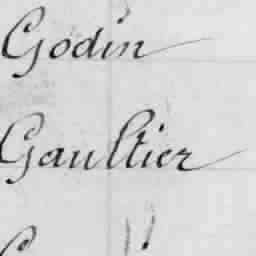 Godin
Gaultier